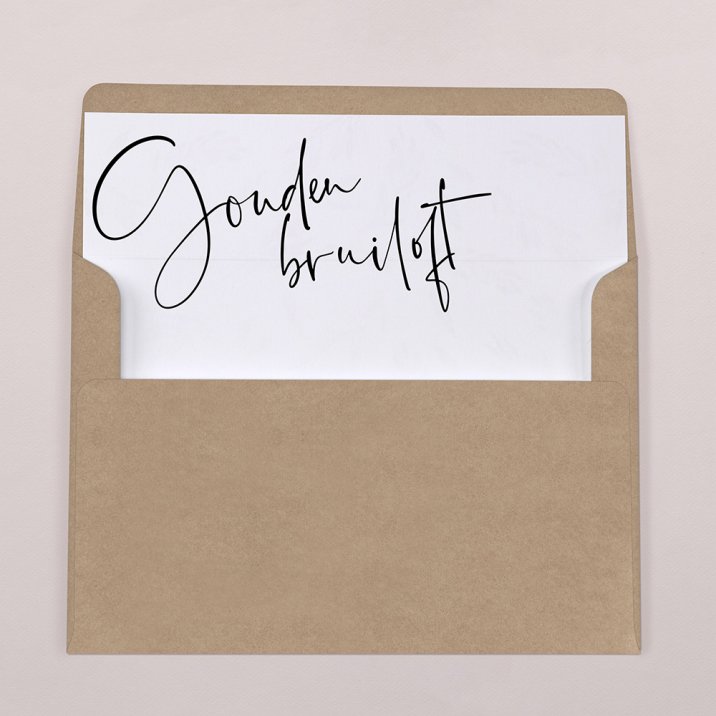 Gouden
bruiloft